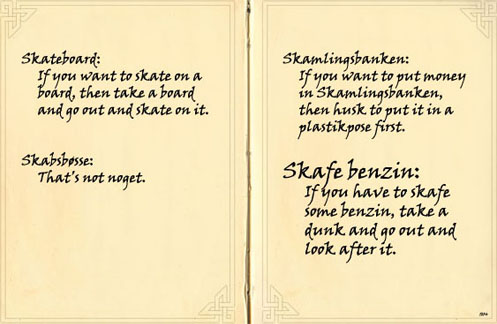 Skateboard:
If you want to skate on a
board, then take a board
and go out and skate on it.
Skabsbøsse:
That's not noget.
Skamlingsbanken:
If you want to put money
in Skamlingsbanken,
then husk to put it in a
plastikpose first.
Skafe benzin:
If you have to skafe
some benzin, take a
dunk and go out and
look after it.